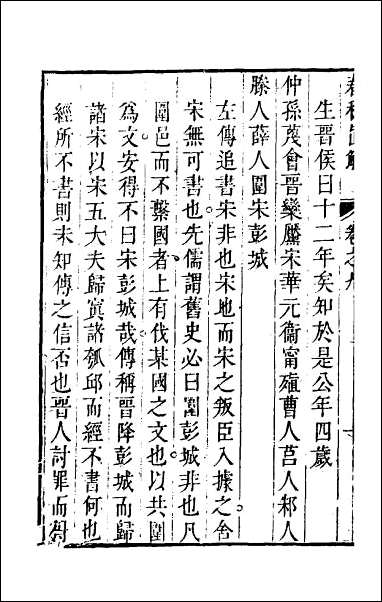 生晉侯曰十二年矣知於是公年四歲
仲孫蔑會晉欒黶宋華元衞甯殖曹人莒人邾人
滕人薛人圍宋彭城
左傳追書宋非也宋地而宋之叛臣入據之舍
宋無可書也先儒謂舊史必曰圍彭城非也凡
圍邑而不繫國者上有伐某國之文也以共圍
為文安得不曰宋彭城哉傳稱晉降彭城而歸
諸宋以宋五大夫歸寘諸瓠邱而經不書何也
經所不書則未知傳之信否也晉人討罪而